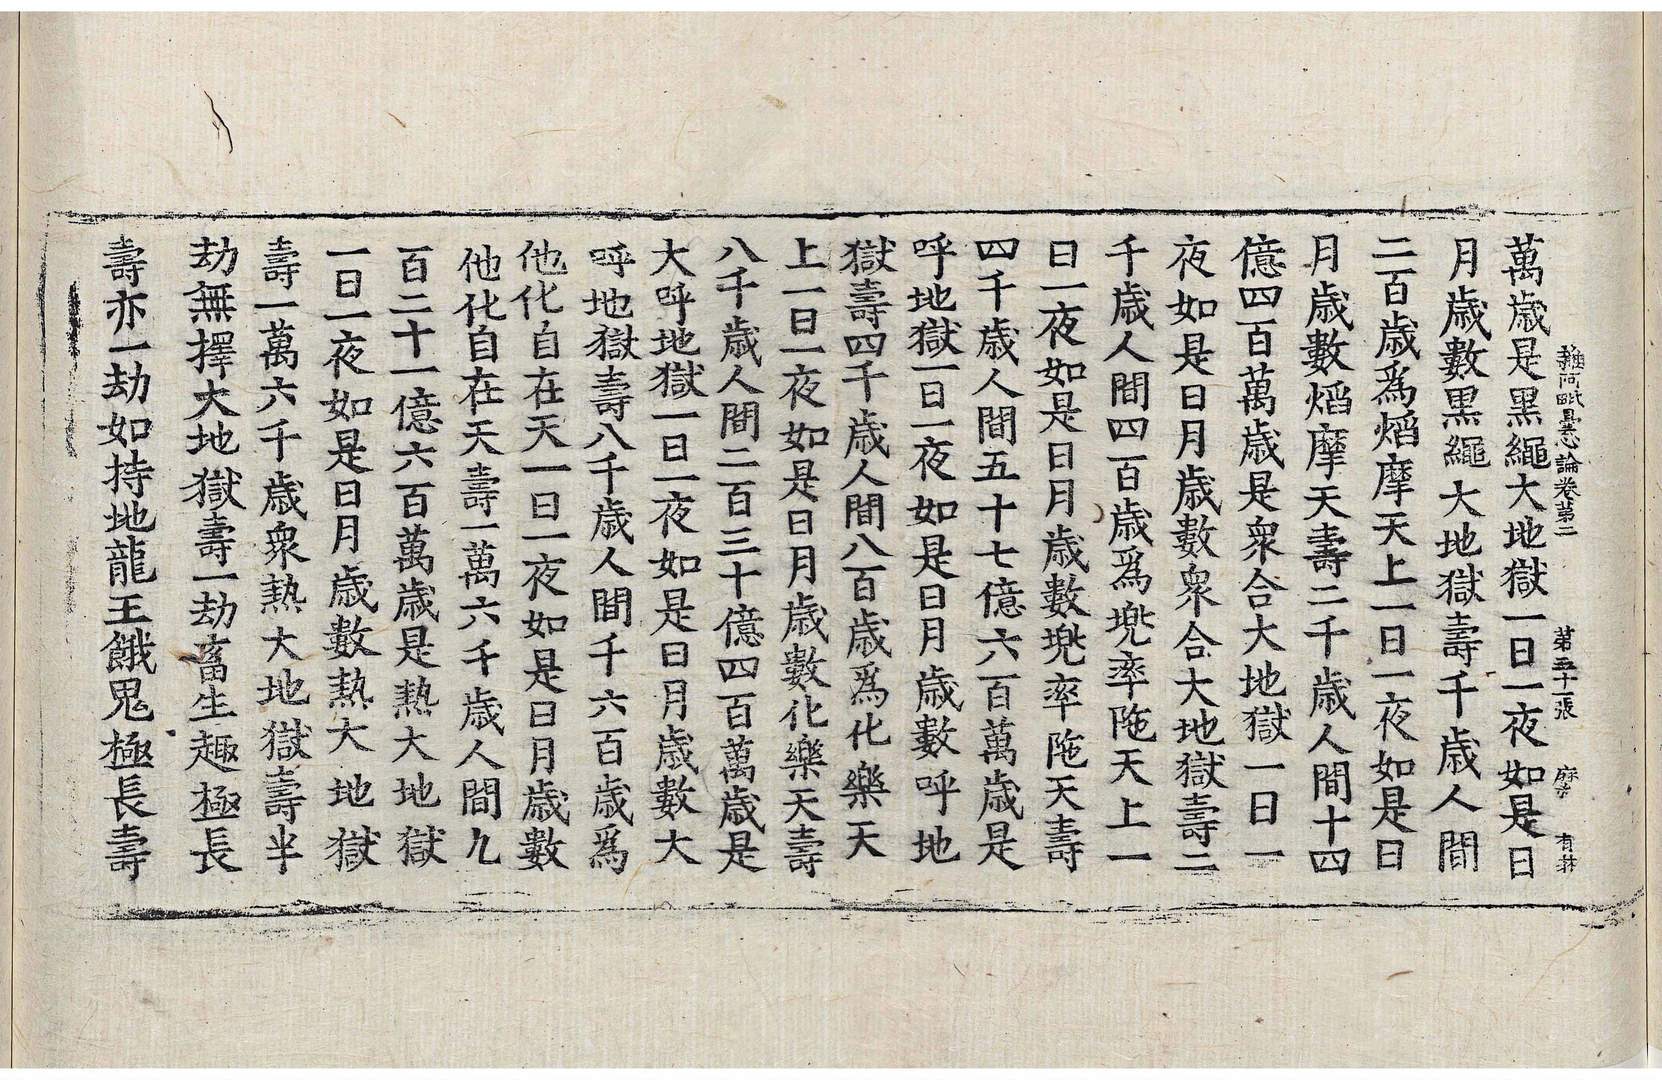 雜阿毗曇心論卷第二 第五十張
萬歲是黑繩大地獄一日一夜如是日
月歲數黒繩大地獄壽千歲人間
二百歲爲熖摩天上一日一夜如是日
月歲數熖摩天壽二千歲人間十四
億四百萬歲是衆合大地獄一日一
夜如是日月歲數衆合大地獄壽二
千歲人間四百歲爲兠率陁天上一
日一夜如是日月歲數兠率陁天壽
四千歲人間五十七億六百萬歲是
呼地獄一日一夜如是日月歲數呼地
獄壽四千歲人間八百歲爲化樂天
上一日一夜如是日月歲數化樂天壽
八千歲人間二百三十億四百萬歲是
大呼地獄一日一夜如是日月歲數大
呼地獄壽八千歲人間千六百歲爲
他化自在天一日一夜如是日月歲數
他化自在天壽一萬六千歲人間九
百二十一億六百萬歲是熱大地獄
一日一夜如是日月歲數熱大地獄
壽一萬六千歲衆熱大地獄壽半
劫無擇大地獄壽一劫畜生趣極長
壽亦一劫如持地龍王餓鬼極長壽